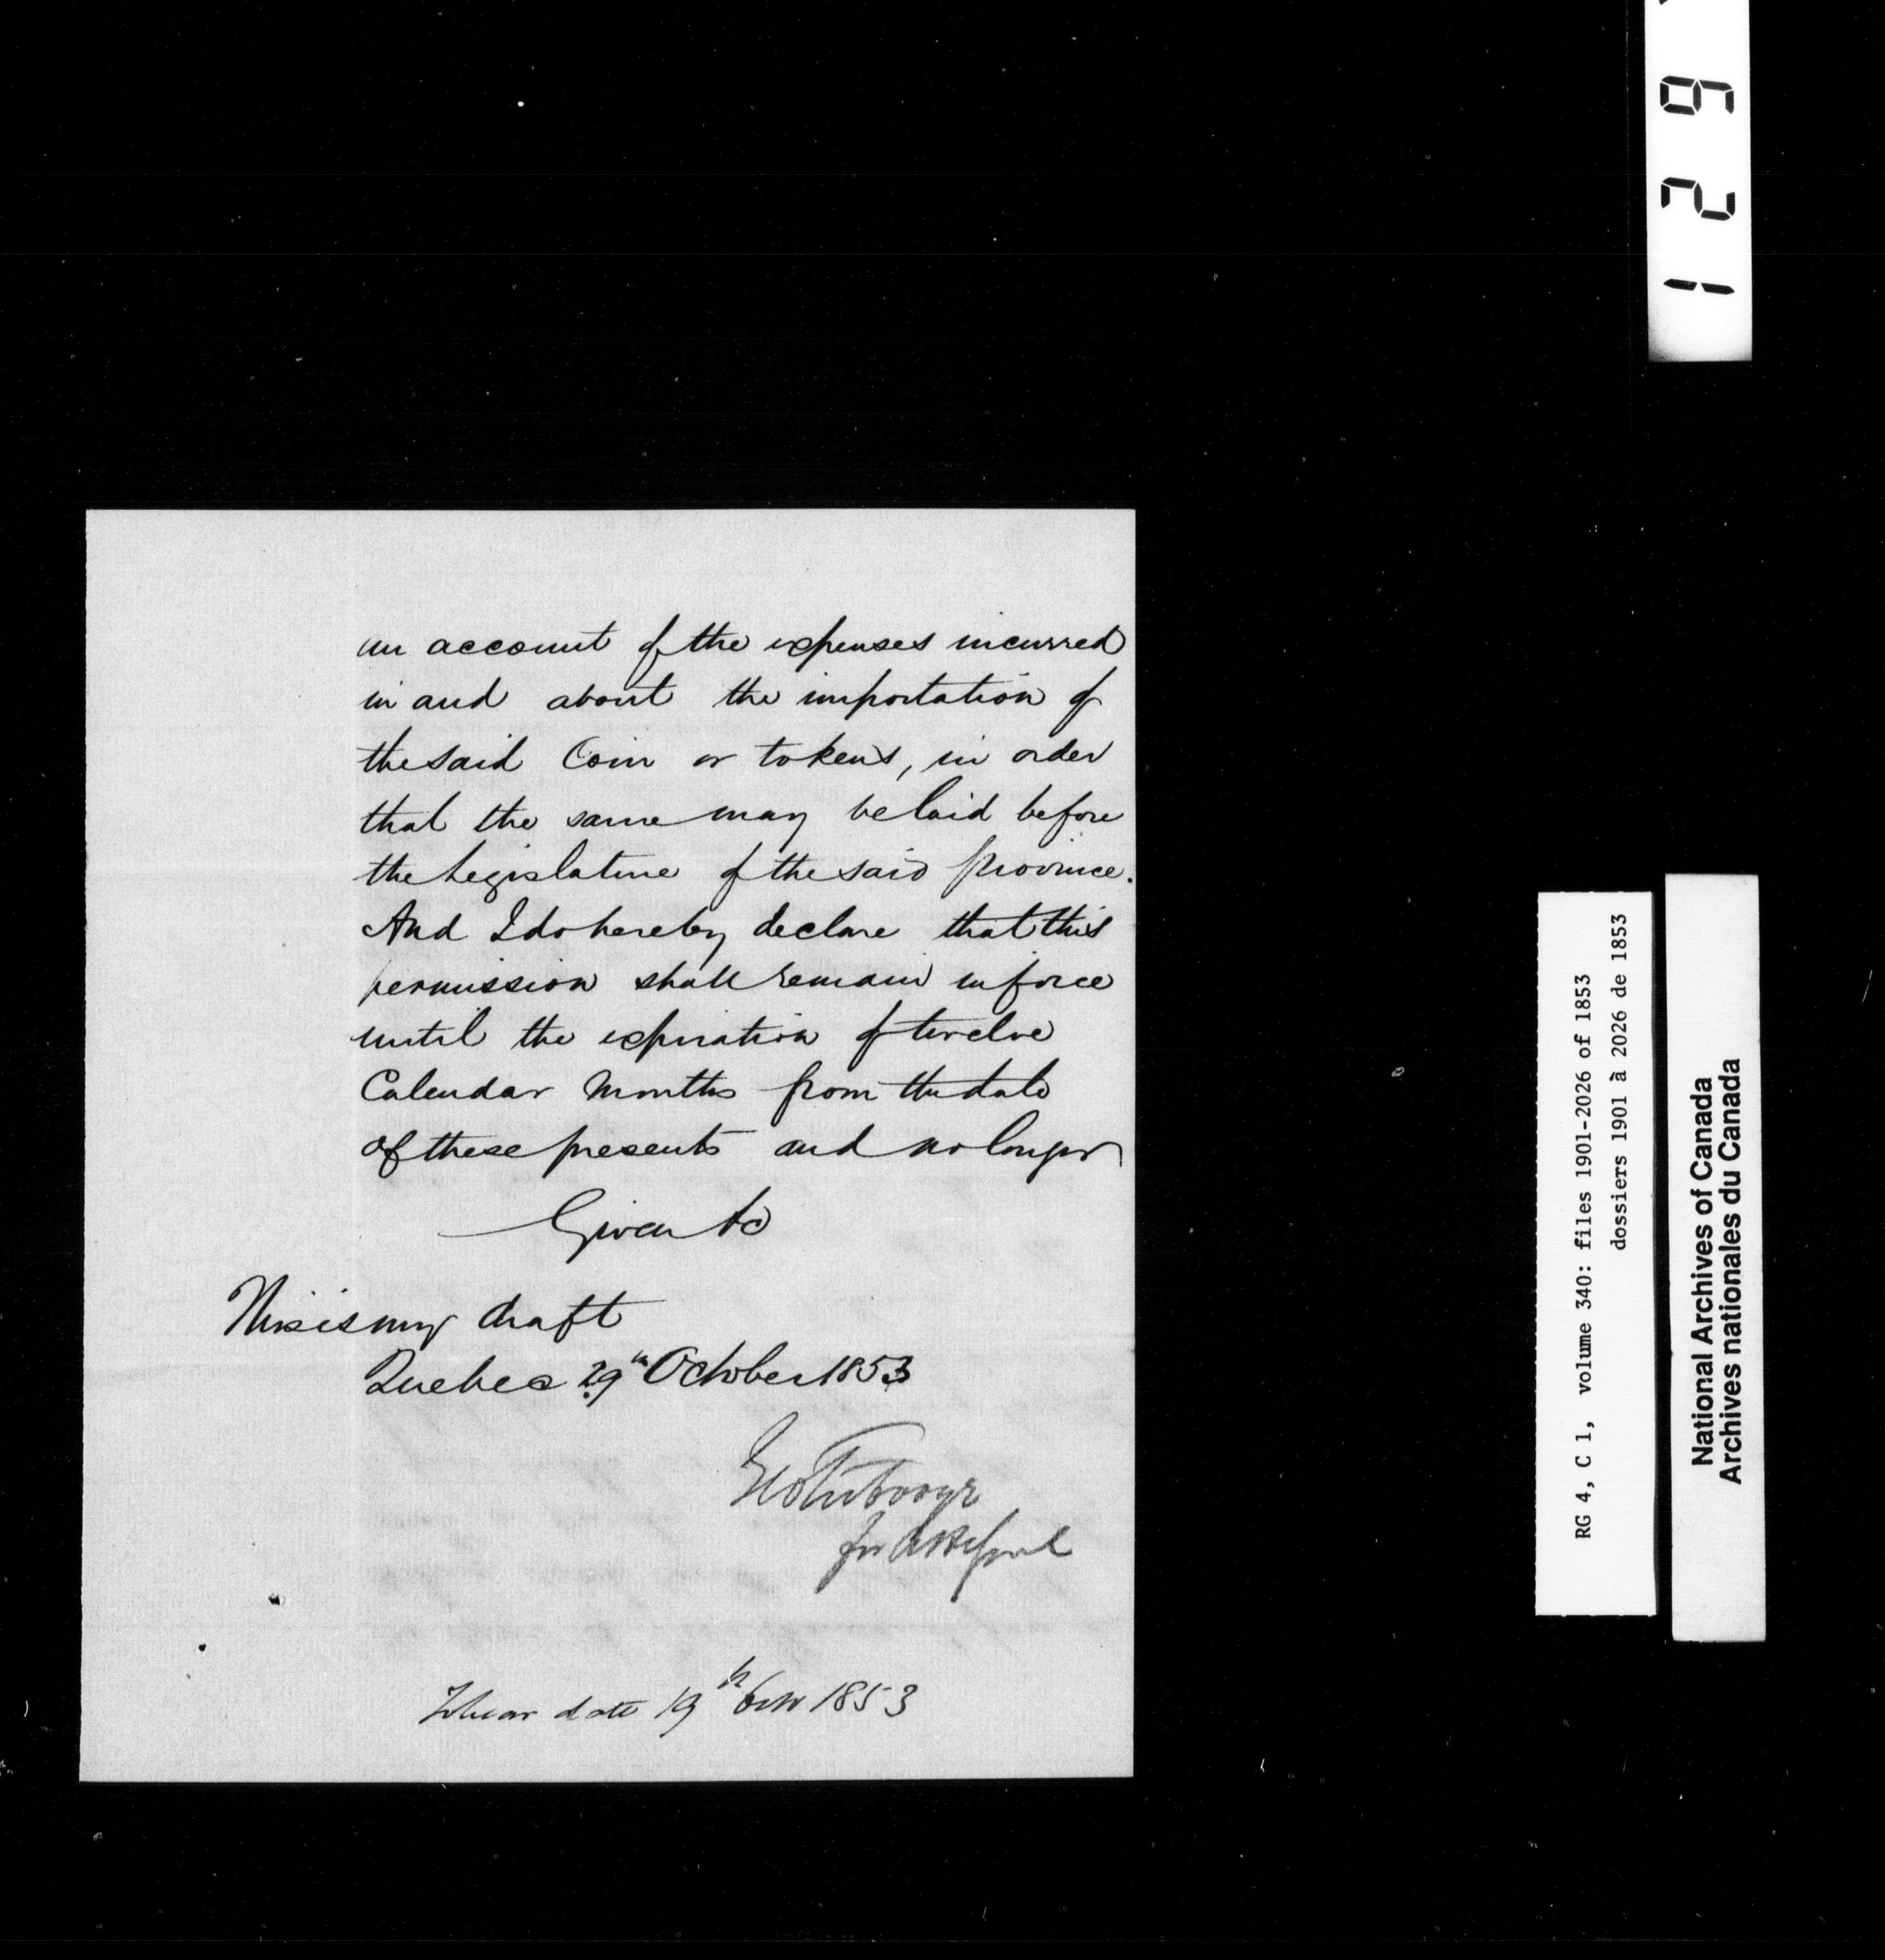 an account of the expenses incurred
in and about the importation of
the said Coin or tokens, in order
that the same may be laid before
the Legislature of the said province.
And I do hereby declare that this
permission shall remain in force
until the expiration of twelve
Calendar Months from the date
of these presents and no longer
Given &c
This is my draft
Quebec 29th October 1853
for
To bear date 19th 1853
129
RG 4, C 1, volume 340: files 1901-2026 of 1853
dossiers 1901 à 2026 de 1853
National Archives of Canada
Archives nationales du Canada